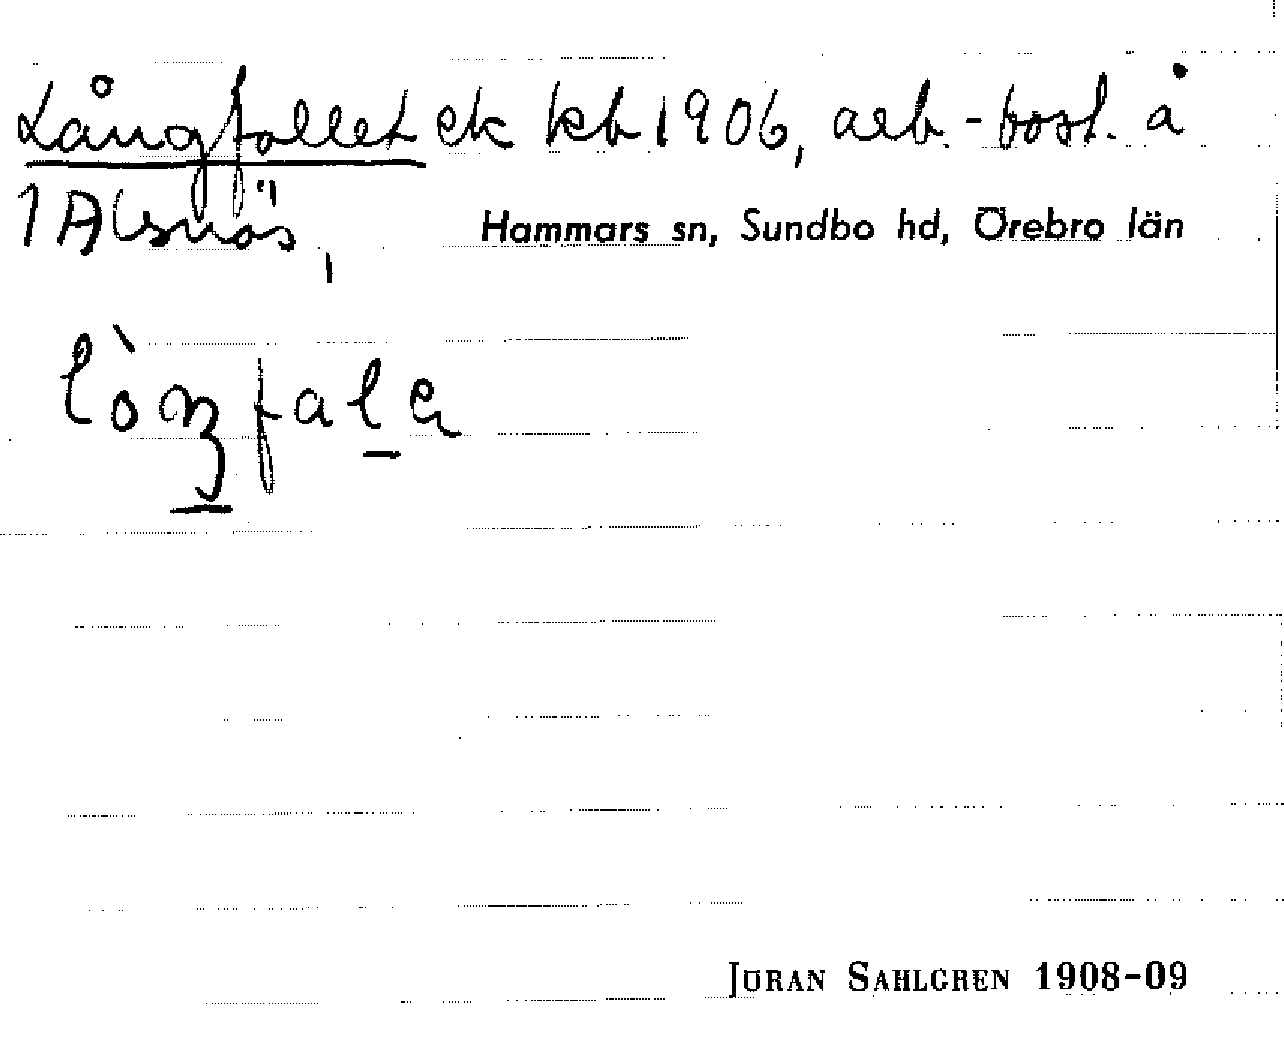 Långfallet ek kb 1906, arb.-bost. å
1 Alsnäs,
Hammars sn, Sundbo hd, Örebro län
lòŋfalɘ
JÖRAN SAHLGREN 1908-09